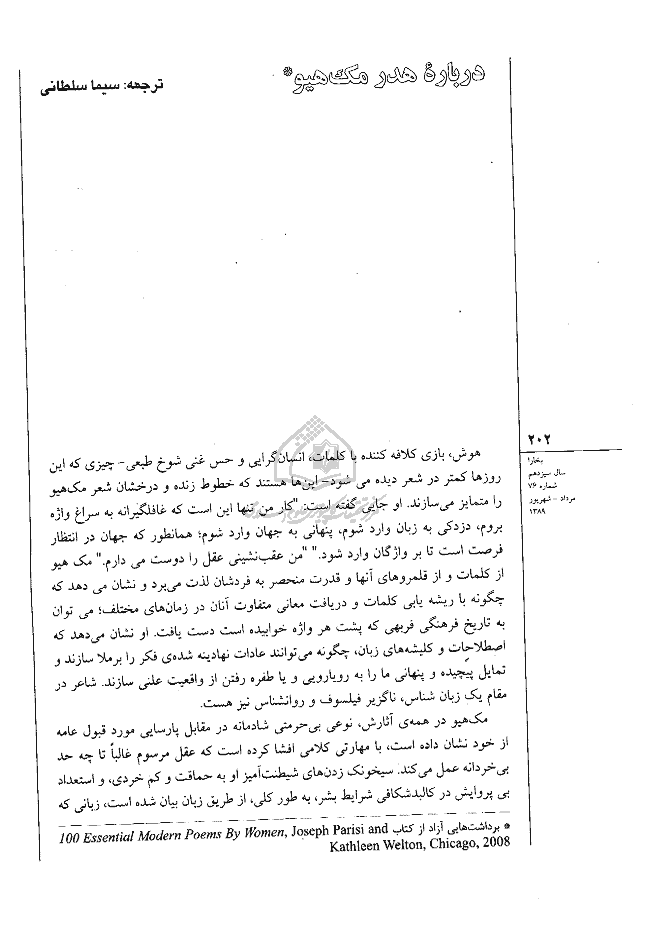 دربارهٔ هدر مک‌هیو*
ترجمه: سیما سلطانی
۲۰۲
بخارا
سال سیزدهم
شماره ۷۶
مرداد - شهریور
۱۳۸۹
هوش، بازی کلافه کننده با کلمات، انسان‌گرایی و حس غنی شوخ طبعی- چیزی که این
روزها کمتر در شعر دیده می شود- این‌ها هستند که خطوط زنده و درخشان شعر مک‌هیو
را متمایز می‌سازند. او جایی گفته است: "کار من تنها این است که غافلگیرانه به سراغ واژه
بروم، دزدکی به زبان وارد شوم، پنهانی به جهان وارد شوم؛ همانطور که جهان در انتظار
فرصت است تا بر واژگان وارد شود." "من عقب‌نشینی عقل را دوست می دارم." مک هیو
از کلمات و از قلمروهای آنها و قدرت منحصر به فردشان لذت می‌برد و نشان می دهد که
چگونه با ریشه یابی کلمات و دریافت معانی متفاوت آنان در زمان‌های مختلف؛ می توان
به تاریخ فرهنگی فربهی که پشت هر واژه خوابیده است دست یافت. او نشان می‌دهد که
اصطلاحات و کلیشه‌های زبان، چگونه می‌توانند عادات نهادینه شده‌ی فکر را برملا سازند و
تمایل پیچیده و پنهانی ما را به رویارویی و یا طفره رفتن از واقعیت علنی سازند. شاعر در
مقام یک زبان شناس، ناگزیر فیلسوف و روانشناس نیز هست.
مک‌هیو در همه‌ی آثارش، نوعی بی‌حرمتی شادمانه در مقابل پارسایی مورد قبول عامه
از خود نشان داده است، با مهارتی کلامی افشا کرده است که عقل مرسوم غالباً تا چه حد
بی‌خردانه عمل می‌کند. سیخونک زدن‌های شیطنت‌آمیز او به حماقت و کم خردی، و استعداد
بی پروایش در کالبدشکافی شرایط بشر، به طور کلی، از طریق زبان بیان شده است، زبانی که
* برداشت‌هایی آزاد از کتاب 100 Essential Modern Poems By Women, Joseph Parisi and
Kathleen Welton, Chicago, 2008